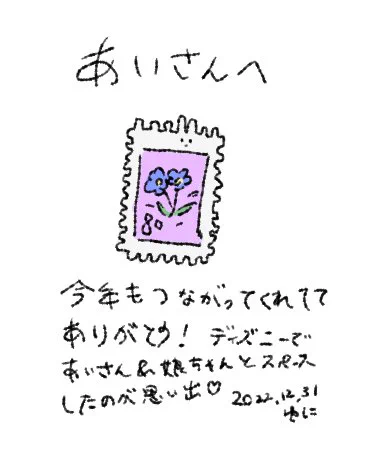 あいさんへ
80
今年もつながってくれてて
ありがとう！ ディズニーで
あいさん&娘ちゃんとスペース
したのが思い出♡ 2022.12.31
ゆに